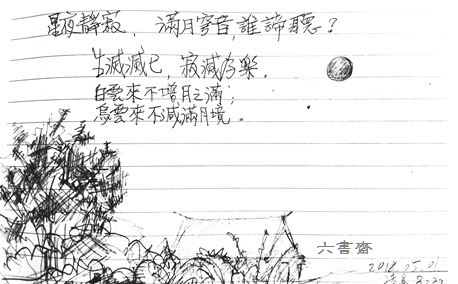 星夜靜寂,滿月寄音,誰諦聽?
生滅滅已,寂滅為樂.
白雲來不增月之滿;
烏雲來不減滿月境。
六書齋
2018.05.01